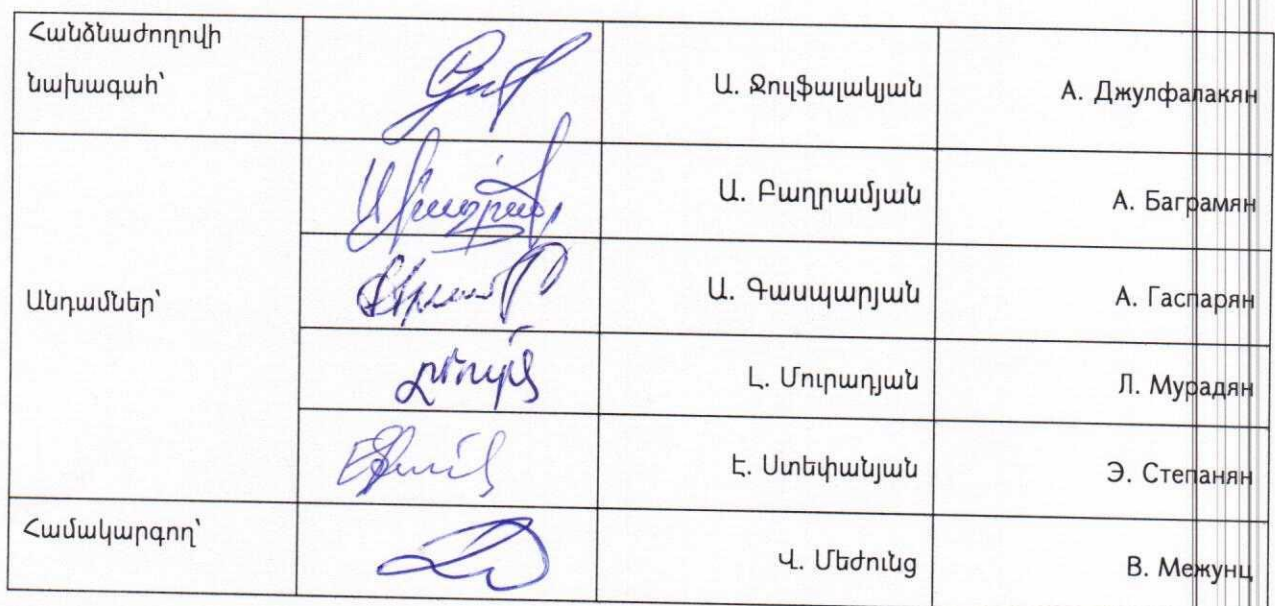 Հանձնաժողովի
նախագահ՝
Ա. Ջուլֆալակյան
А. Джулфалакян
Անդամներ՝
Ա. Բաղրամյան
А. Баграмян
Ա. Գասպարյան
А. Гаспарян
Լ. Մուրադյան
Л. Мурадян
Է. Ստեփանյան
Э. Степанян
Համակարգող՝
Վ. Մեժունց
В. Межунц